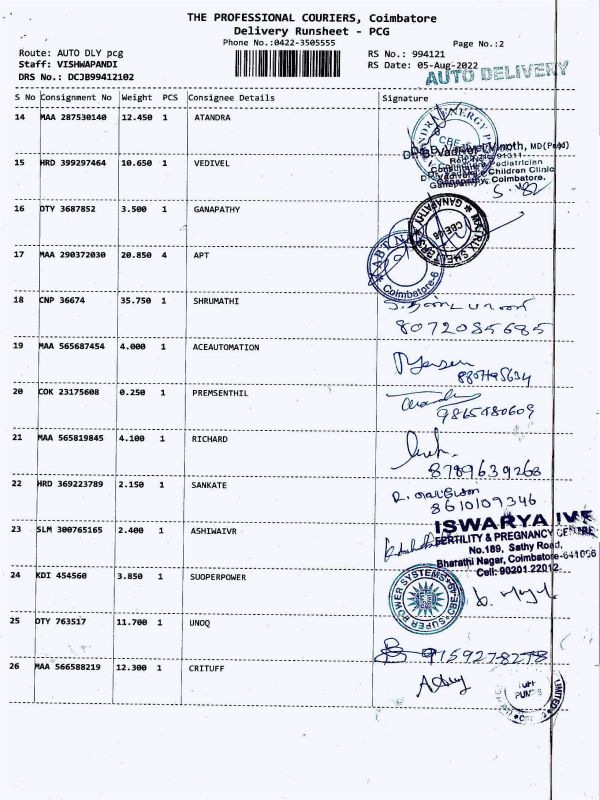 THE PROFESSIONAL COURIERS, Coimbatore
Delivery Runsheet - PCG
Phone No.:0422-3505555
Page No.:2
Route: AUTO DLY pcg
RS No.: 994121
Staff: VISHWAPANDI
RS Date: 05-Aug-2022
DRS No.: DCJB99412102
AUTO DELIVERY
S No Consignment No Weight PCS Consignee Details Signature
14 MAA 287530140 12.450 1 ATANDRA
Dr. B. Vadivel Vinoth, MD(Paed)
Consultant Pediatrician
Children Clinic
Ganapathy, Coimbatore.
15 HRD 399297464 10.650 1 VEDIVEL
16 OTY 3687852 3.500 1 GANAPATHY
GANAPATHY
17 MAA 290372030 20.850 4 APT
Coimbatore-6
18 CNP 36674 35.750 1 SHRUMATHI
8072085685
19 MAA 565687454 4.000 1 ACEAUTOMATION
20 COK 23175608 0.250 1 PREMSENTHIL
9865480609
21 MAA 565819845 4.100 1 RICHARD
8789639268
22 HRD 369223789 2.150 1 SANKATE
8610109346
23 SLM 300765165 2.400 1 ASHIWAIVR
ISWARYA IVF
FERTILITY & PREGNANCY CENTRE
No.189, Sathy Road,
Bharathi Nagar, Coimbatore-641006
Cell: 90201 22012
24 KDI 454560 3.850 1 SUOPERPOWER
SUPER POWER SYSTEMS
25 OTY 763517 11.700 1 UNOQ
9159278278
26 MAA 566588219 12.300 1 CRITUFF
TUFF
PUMPS
LIMITED